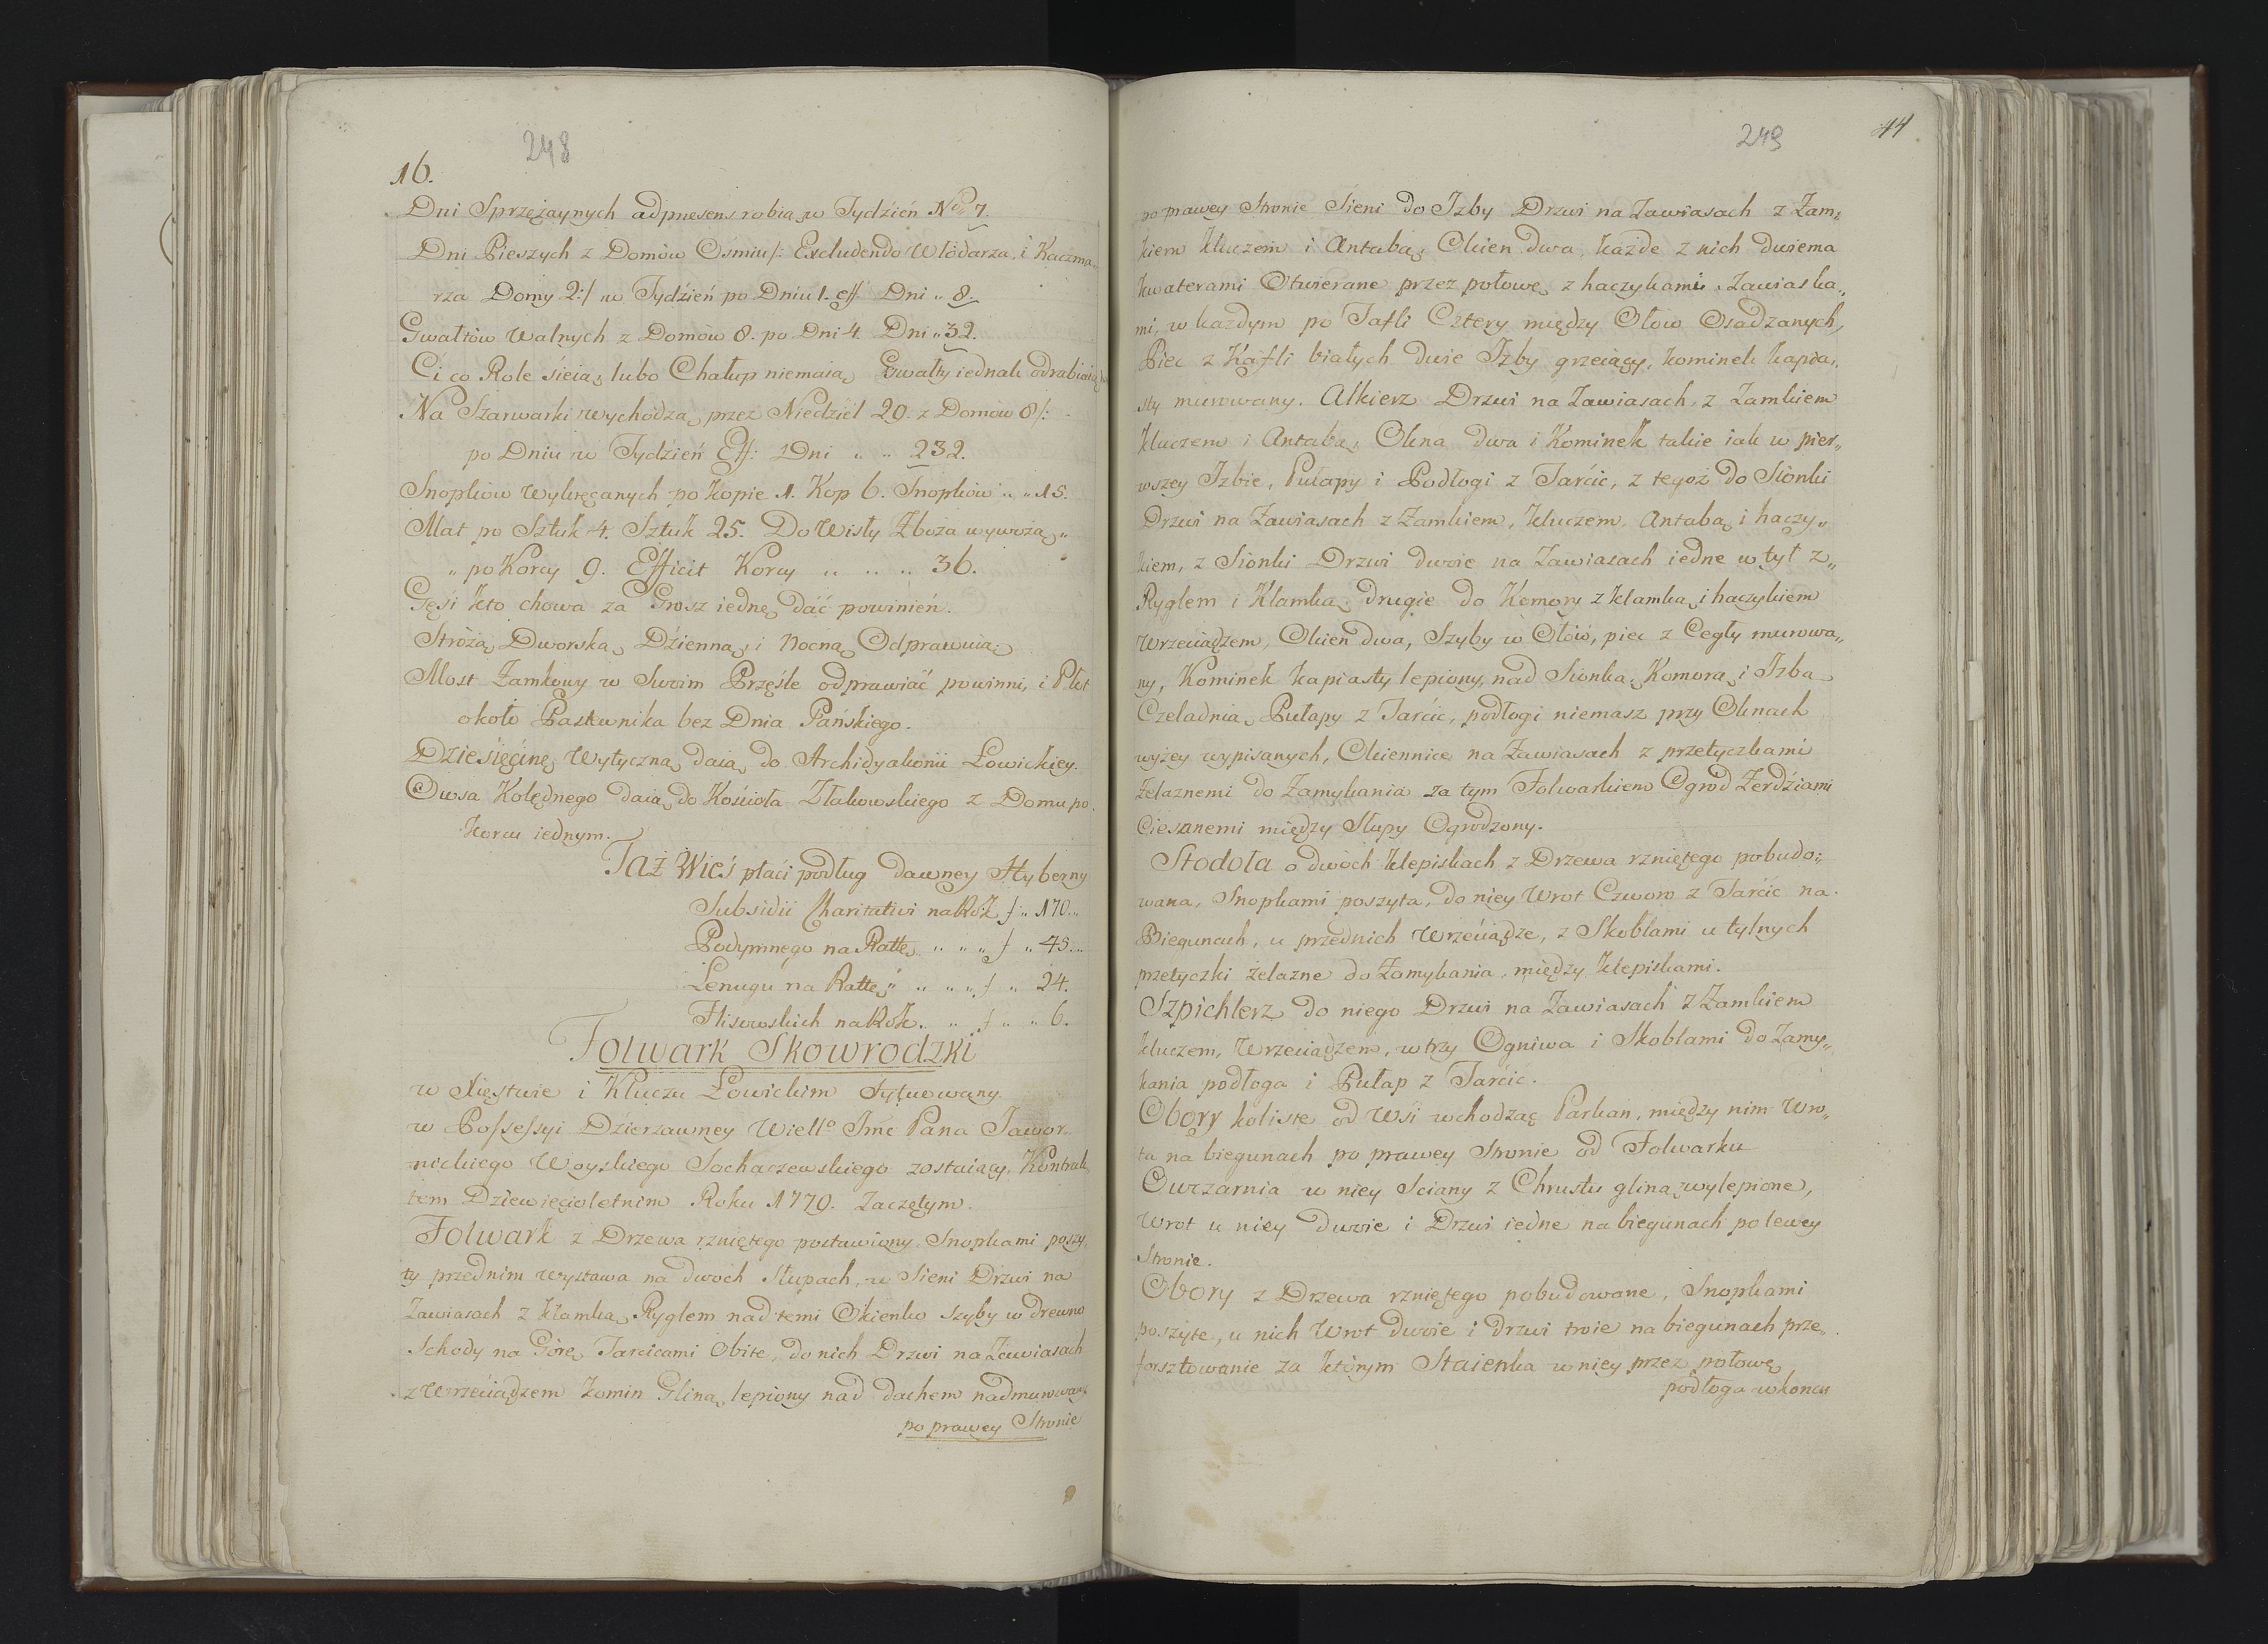 248
16.
Dni Sprzężaynych adpraesens robią w Tydźień No 7.
Dni Pieszych z Domów Ośmiu /: Excludendo Włódarza, i Kaczma„
rza Domy 2:/ w Tydźień po Dniu 1. eff. Dni „ 8.
Gwałtów Walnych z Domów 8. po Dni 4. Dni „ 32.
Ci co Role sieią, lubo Chałup niemaią Gwałty iednak odrabiaią
Na Szarwarki wychodzą przez Niedziel 29. z Domów 8/:
po Dniu w Tydźień Eff: Dni „ „ 232.
Snopków Wykręcanych po Kopie 1. Kop 6. Snopków „ „ 15.
Mat po Sztuk 4. Sztuk 25. Do Wisły Zboża wywożą „
„ po Korcy 9. Efficit Korcy „ „ „ 36.
Gęśi kto chowa za Grosz iednę dać powinień.
Stróżą Dworską Dźienną, i Nocną Odprawuią
Most Zamkowy w Swoim Przęśle odprawiać powinni, i Płot
około Pastewnika bez Dnia Pańskiego.
Dzieśięćinę Wytyczną daią do Archidyakonii Łowickiey.
Owsa Kolędnego daią do Kościoła Złakowskiego z Domu po
Korcu iednym.
Taż Wieś płaći podług dawney Hyberny
Subsidii Charitativi na Rok f „ 170 „
Podymnego na Rattę „ „ „ f „ 45 „
Lenugu na Rattę „ „ „ f „ 24.
Flisowskich na Rok „ „ f „ „ 6.
Folwark Skowrodzki
w Xięstwie i Kluczu Łowickim Sytuowany
w Possessyi Dźierzawney Wiello Jmć Pana Jawor„
nickiego Woyskiego Sochaczewskiego zostaiący, Kontrak„
tem Dziewięćioletnim Roku 1779. Zaczętym.
Folwark z Drzewa rzniętego postawiony Snopkami poszy„
ty przednim wystawa na dwoch Słupach, w Sieni Drzwi na
Zawiasach z Klamką Ryglem nad temi Okienko szyby w drewno
Schody na Górę Tarcicami Obite, do nich Drzwi na Zawiasach
z Wrzeciądzem Komin Gliną lepiony nad dachem nadmurowany
po prawey Stronie
249
44
po prawey Stronie Sieni do Izby Drzwi na Zawiasach z Zam„
kiem Kluczem i Antabą, Okien dwa, każde z nich dwiema
kwaterami Otwierane przez połowę z haczykami Zawiaska„
mi, w każdym po Tafli Cztery między Ołow Osadzanych,
Piec z Kafli białych dwie Izby grzeiący, kominek kapia„
sty murowany. Alkierz Drzwi na Zawiasach, z Zamkiem
Kluczem i Antabą, Okna dwa i Kominek takie iak w pier„
wszey Izbie, Pułapy i Podłogi z Tarćic, z tegoż do Sionki
Drzwi na Zawiasach z Zamkiem, Kluczem, Antabą i haczy„
kiem, z Sionki Drzwi dwoie na Zawiasach iedne w tył z„
Ryglem i Klamką, drugie do Komory z klamką i haczykiem
Wrzeciądzem, Okien dwa, Szyby w Ołów, piec z Cegły murowa„
ny, Kominek kapiasty lepiony, nad Sionką, Komorą i Izbą
Czeladnią Pułapy z Tarćic, podłogi niemasz przy Oknach
wyżey wypisanych, Okiennice na Zawiasach z przetyczkami
Żelaznemi do Zamykania za tym Folwarkiem Ogrod Żerdźiami
Ciesanemi między Słupy Ogrodzony.
Stodoła o dwóch Klepiskach z Drzewa rzniętego pobudo„
wana, Snopkami poszyta, do niey Wrot Czworo z Tarćic na
Biegunach, u przednich Wrzeciądze, z Skoblami u tylnych
przetyczki żelazne do Zamykania, między Klepiskami.
Szpichlerz do niego Drzwi na Zawiasach z Zamkiem
Kluczem, Wrzeciądzem, w trzy Ogniwa i Skoblami do Zamy„
kania podłoga i Pułap z Tarćic.
Obory koliste od Wśi wchodząc Parkan, między nim Wro„
ta na biegunach po prawey Stronie od Folwarku
Owczarnia w niey Sciany z Chrustu gliną wylepione,
Wrot u niey dwoie i Drzwi iedne na biegunach po lewey
Stronie.
Obory z Drzewa rzniętego pobudowane, Snopkami
poszyte, u nich Wrot dwoie i drzwi troie na biegunach prze„
forsztowanie za którym Staienka w niey przez połowę
podłoga w koncu